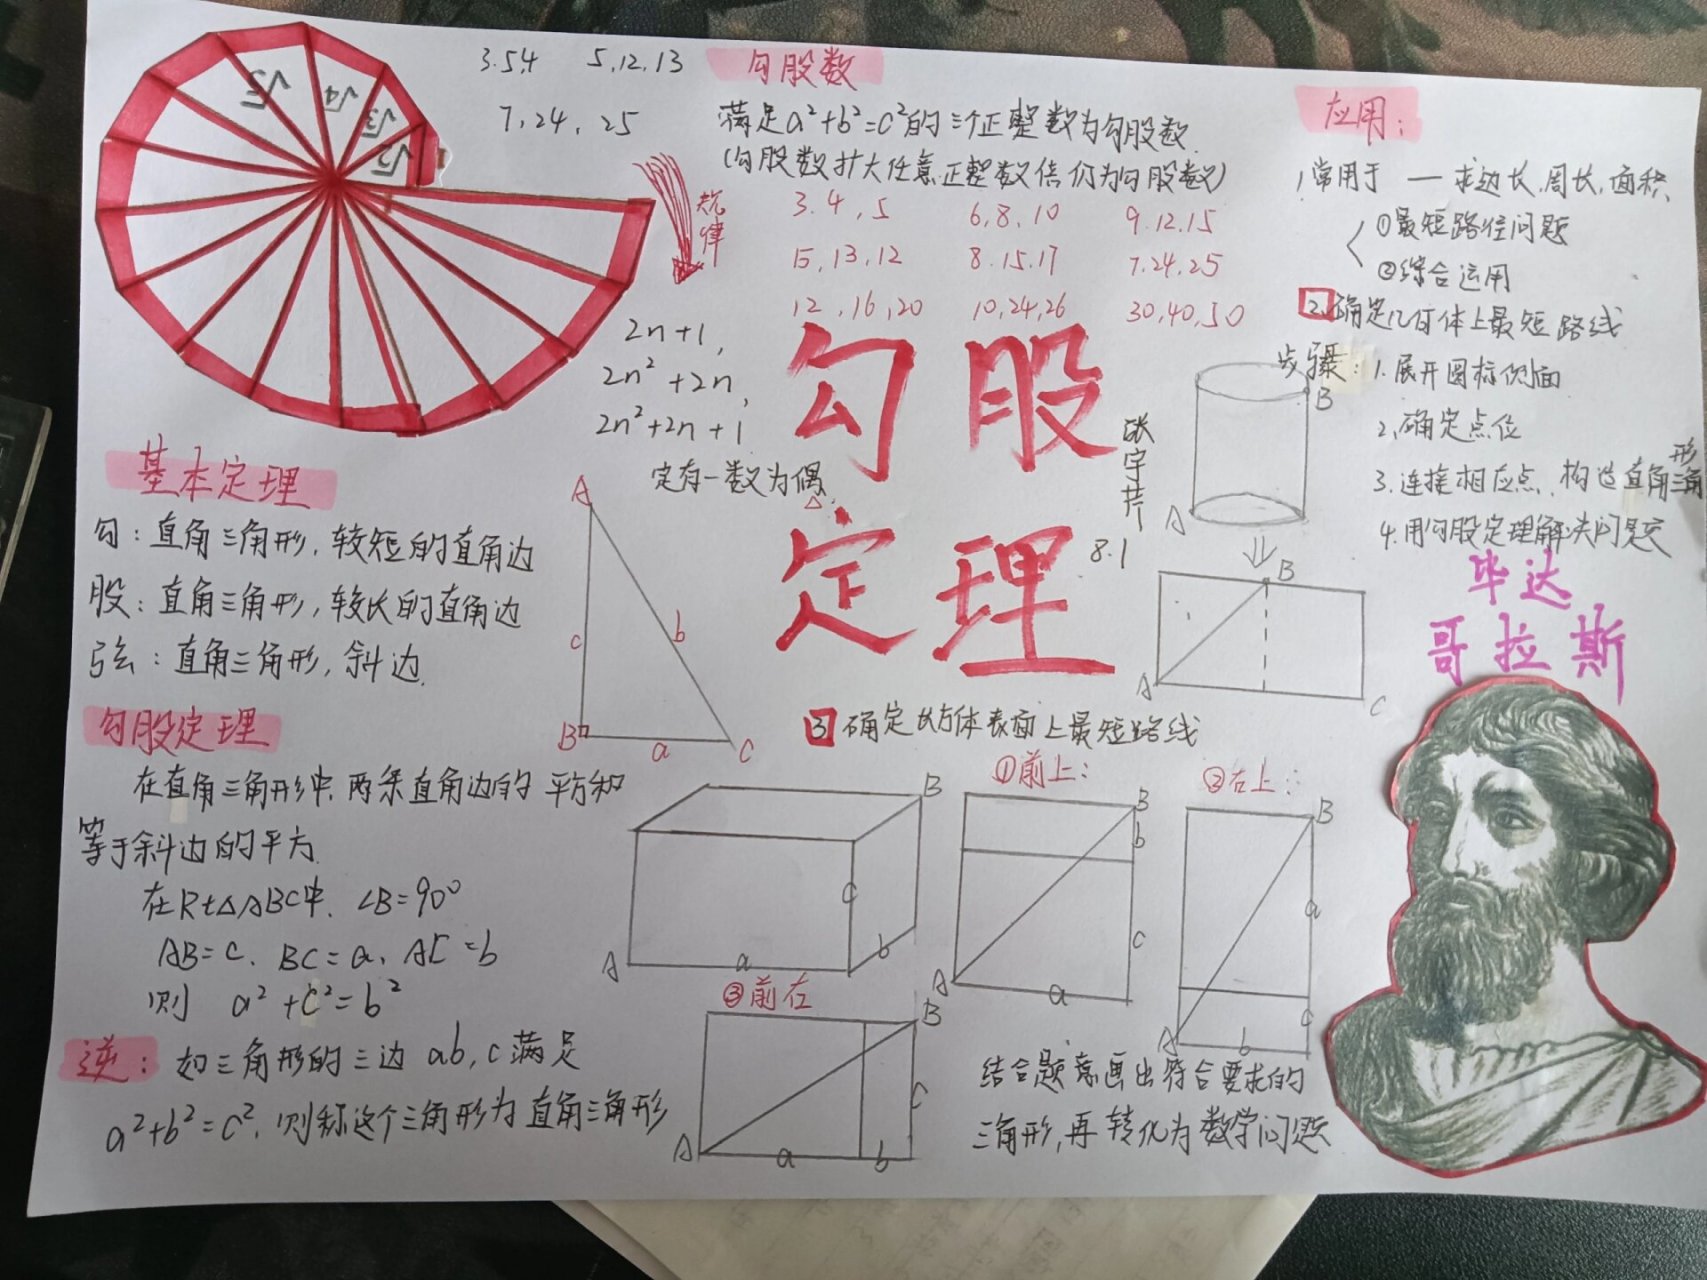 √5
√4
√3
√2
3.5.4 5,12,13
7,24,25
规律
2n+1,
2n²+2n,
2n²+2n+1
定有一数为偶
勾股数
满足a²+b²=c²的三个正整数为勾股数.
(勾股数扩大任意正整数倍仍为勾股数)
3.4,5 6,8,10 9.12.15
15,13,12 8.15.17 7.24.25
12,16,20 10,24,26 30,40,50
勾股
定理
8.1
基本定理
勾:直角三角形,较短的直角边
股:直角三角形,较长的直角边
弦:直角三角形,斜边.
A
c
b
B
a
C
勾股定理
在直角三角形中,两条直角边的平方和
等于斜边的平方.
在Rt△ABC中.∠B=90°
AB=c.BC=a,AC=b
则 a²+c²=b²
逆:如三角形的三边ab,c满足
a²+b²=c²,则称这个三角形为直角三角形
应用:
1,常用于 一求边长,周长,面积,
①最短路径问题
②综合运用
2.确定几何体上最短路线
步骤:1.展开圆标侧面
2,确定点位
3.连接相应点.构造直角三角形
4.用勾股定理解决问题
B
A
B
A
C
毕达
哥拉斯
3 确定长方体表面上最短路线
①前上:
②右上:
B
c
A
a
b
B
b
c
A
a
B
a
A
c
b
③前右
B
c
A
a
b
结合题意画出符合要求的
三角形,再转化为数学问题